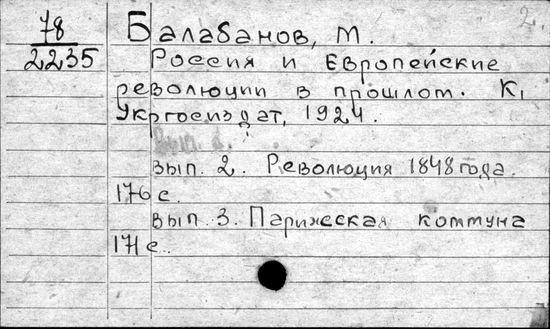 2.
78
2235
Балабанов, М.
Россия и Европейские
революции в прошлом. К,
Укргосиздат, 1924.
Вып.
вып. 2. Революция 1848 года.
176 с.
вып. 3. Парижская коммуна
171 с.